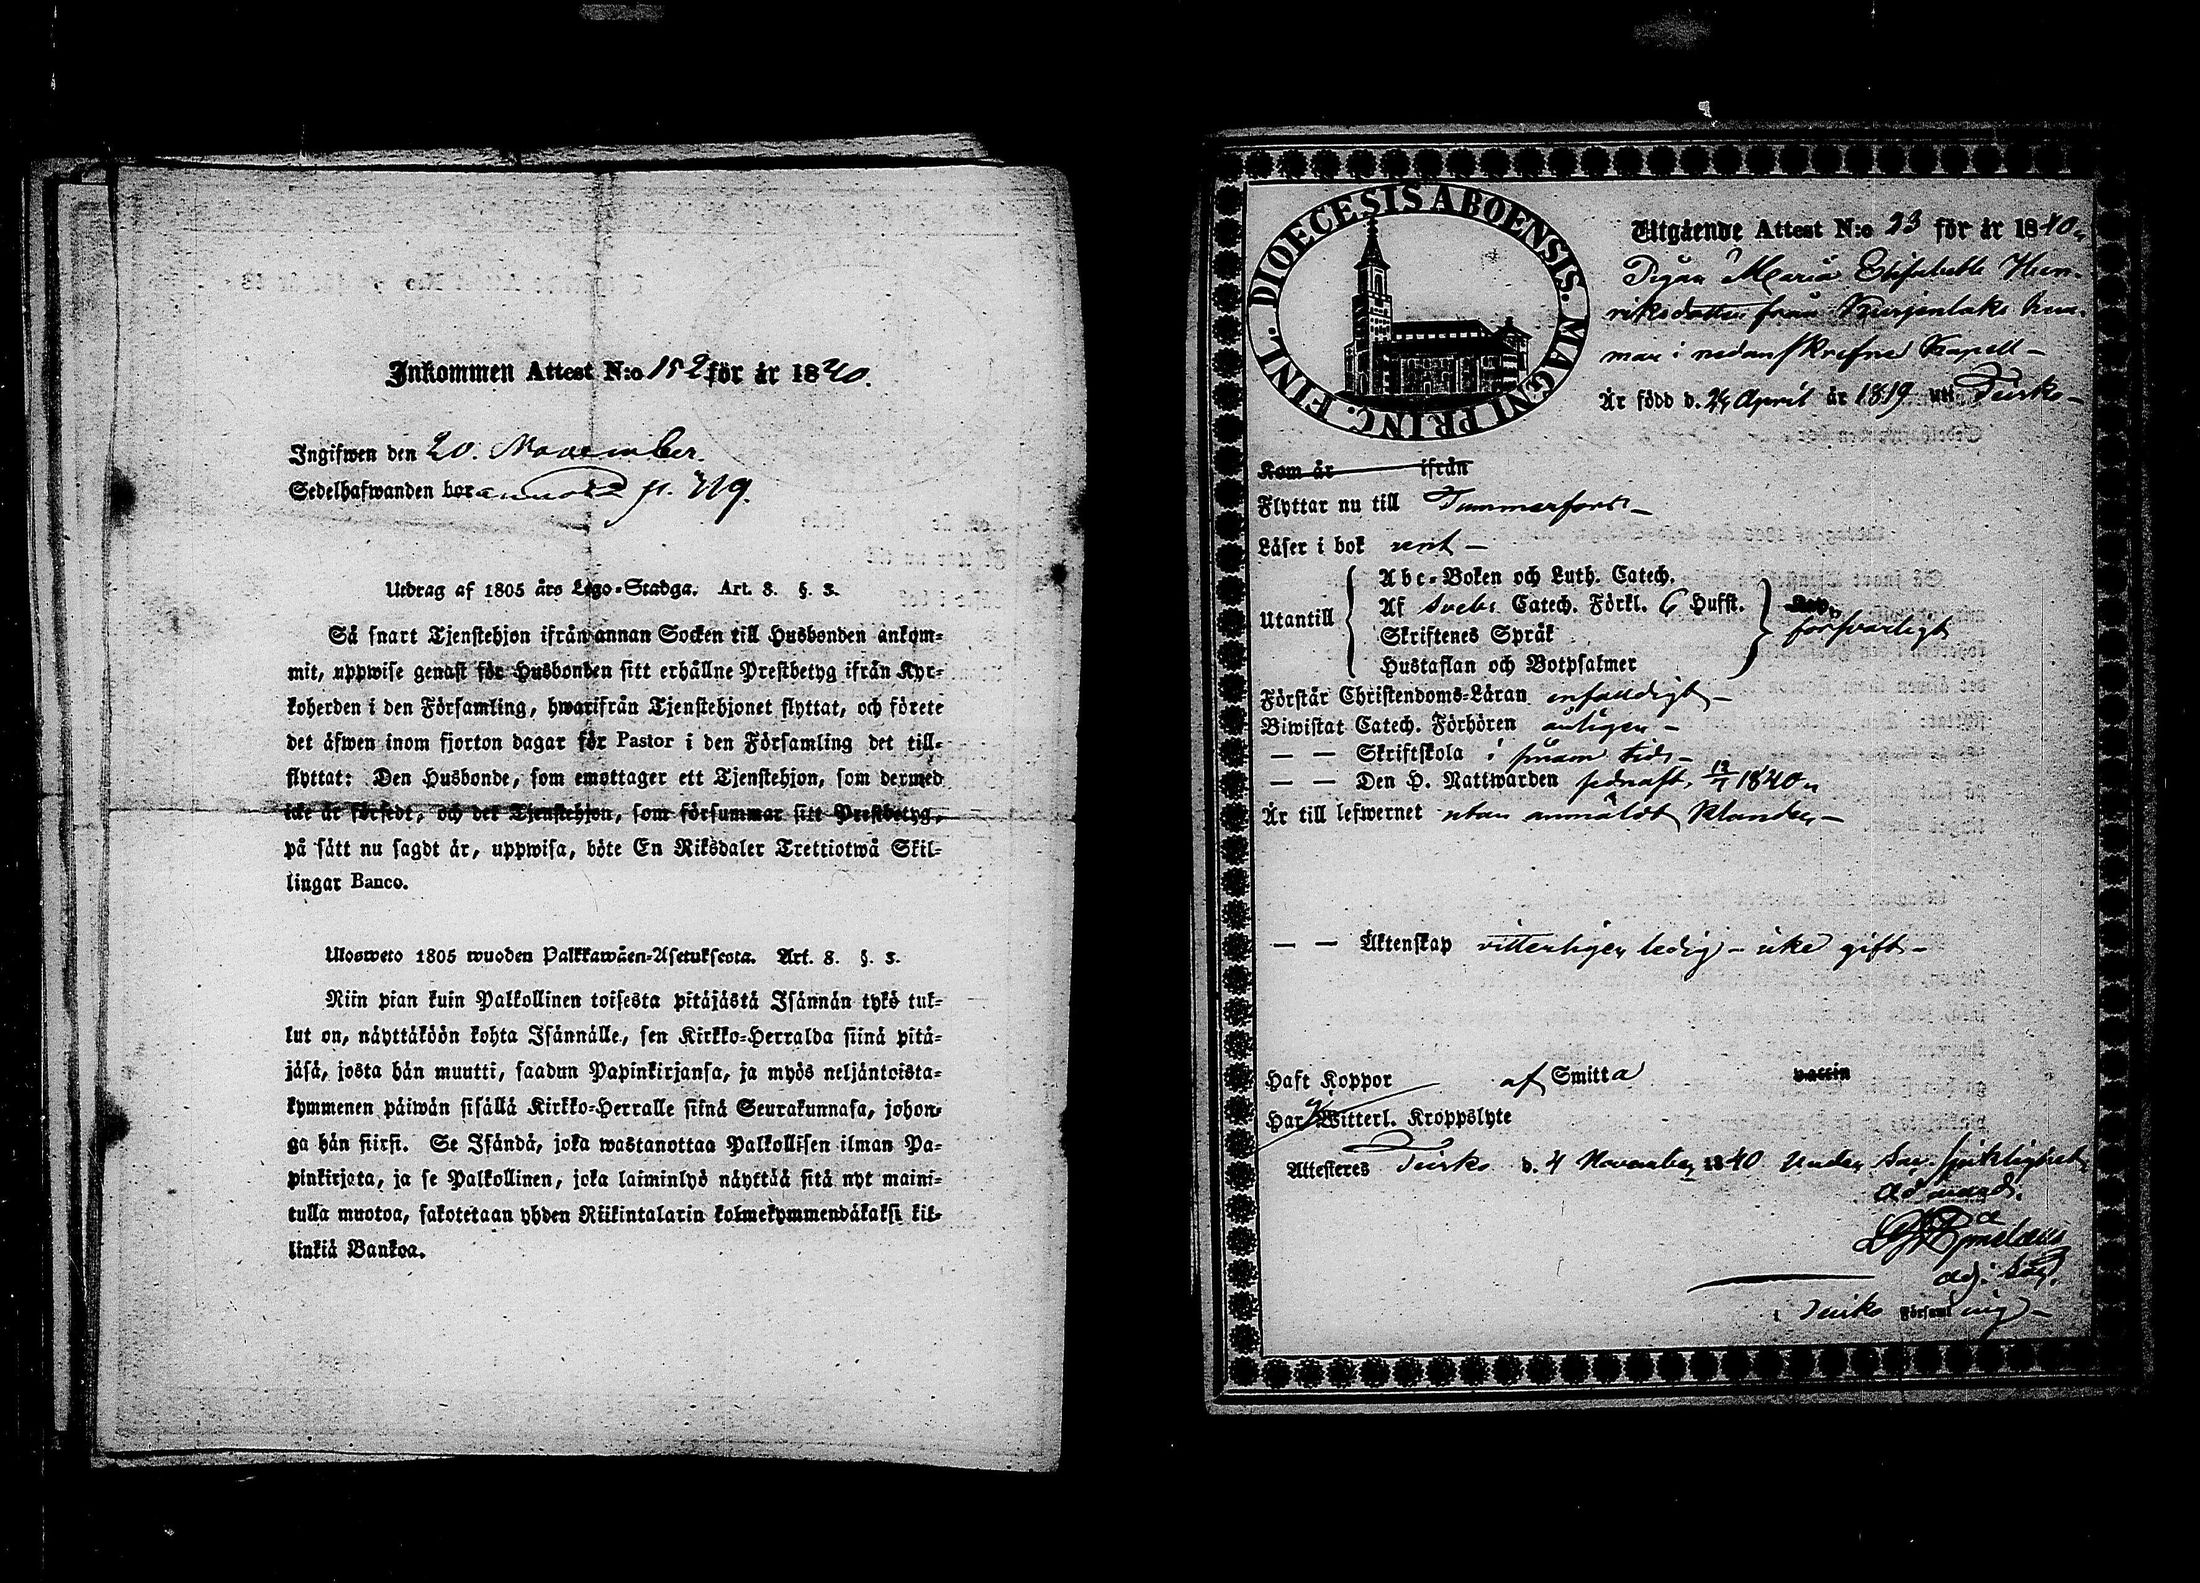 Inkommen Attest N:o 152 för år 1840.
Ingifwen den 20. November.
Sedelhafwanden bor annord p. 719.
Utdrag af 1805 års Lego-Stadga. Art. 8. §. 3.
Så snart Tjenstehjon ifrån annan Socken till Husbonden ankom-
mit, uppwise genast för Husbonden sitt erhållne Prestbetyg ifrån Kyr-
koherden i den Församling, hwarifrån Tjenstehjonet flyttat, och förete
det äfwen inom fjorton dagar för Pastor i den Församling det till-
flyttat: Den Husbonde, som emottager ett Tjenstehjon, som dermed
icke är försedt, och det Tjenstehjon, som försummar sitt Prestbetyg,
på sätt nu sagdt är, uppwisa, böte En Riksdaler Trettiotwå Skil-
lingar Banco.
Ulosweto 1805 wuoden Palkkawäen-Asetuksesta. Art. 8. §. 3.
Niin pian kuin Palkollinen toisesta pitäjästä Isännän tykö tul-
lut on, näyttäköön kohta Isännälle, sen Kirkko-Herralda siinä pitä-
jäsä, josta hän muutti, saadun Papinkirjansa, ja myös neljäntoista-
kymmenen päiwän sisällä Kirkko-Herralle siinä Seurakunnasa, johon-
ga hän siirsi. Se Isändä, joka wastanottaa Palkollisen ilman Pa-
pinkirjata, ja se Palkollinen, joka laiminlyö näyttää sitä nyt maini-
tulla muotoa, sakotetaan yhden Riikintalarin kolmekymmendäkaksi kil-
linkiä Bankoa.
DIOECESIS ABOENSIS. MAGNI PRINC. FINL.
Utgående Attest N:o 23 för år 1840.
Pigan Maria Elisabeth Hen-
riksdotter från Kurjenlaks hem-
man i nedanskrefne Kapell -
Är född d. 24 April år 1819 uti Teisko -
Kom år ifrån
Flyttar nu till Tammerfors -
Läser i bok rent -
Abc-Boken och Luth. Catech.
Utantill Af Svebi Catech. Förkl. 6 Hufst. försvarligt
Skriftenes Språk
Hustaflan och Botpsalmer
Förstår Christendoms-Läran enfaldigt -
Biwistat Catech. Förhören årligen -
— — Skriftskola i sinom tid -
— — Den H. Nattwarden sednast 12/7 1840
Är till lefwernet utan anmäldt klander -
— — Äktenskap vitterligen ledig - icke gift -
Haft Koppor af Smitta vaccin
Har Witterl. Kroppslyte
Attesteres Teisko d. 4 November 1840 Under
adj:
i Teisko Församling -